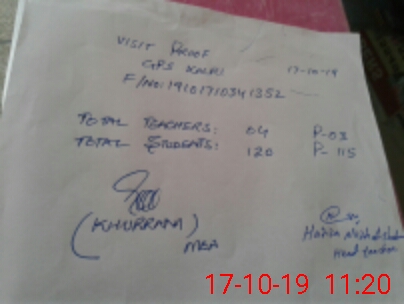 VISIT PROOF
GPS KALRI 17-10-19
F/NO: 19101710341352
TOTAL TEACHERS: 04 P-03
TOTAL STUDENTS: 120 P-115
(KHURRAM)
MEA
Head teacher
17-10-19 11:20